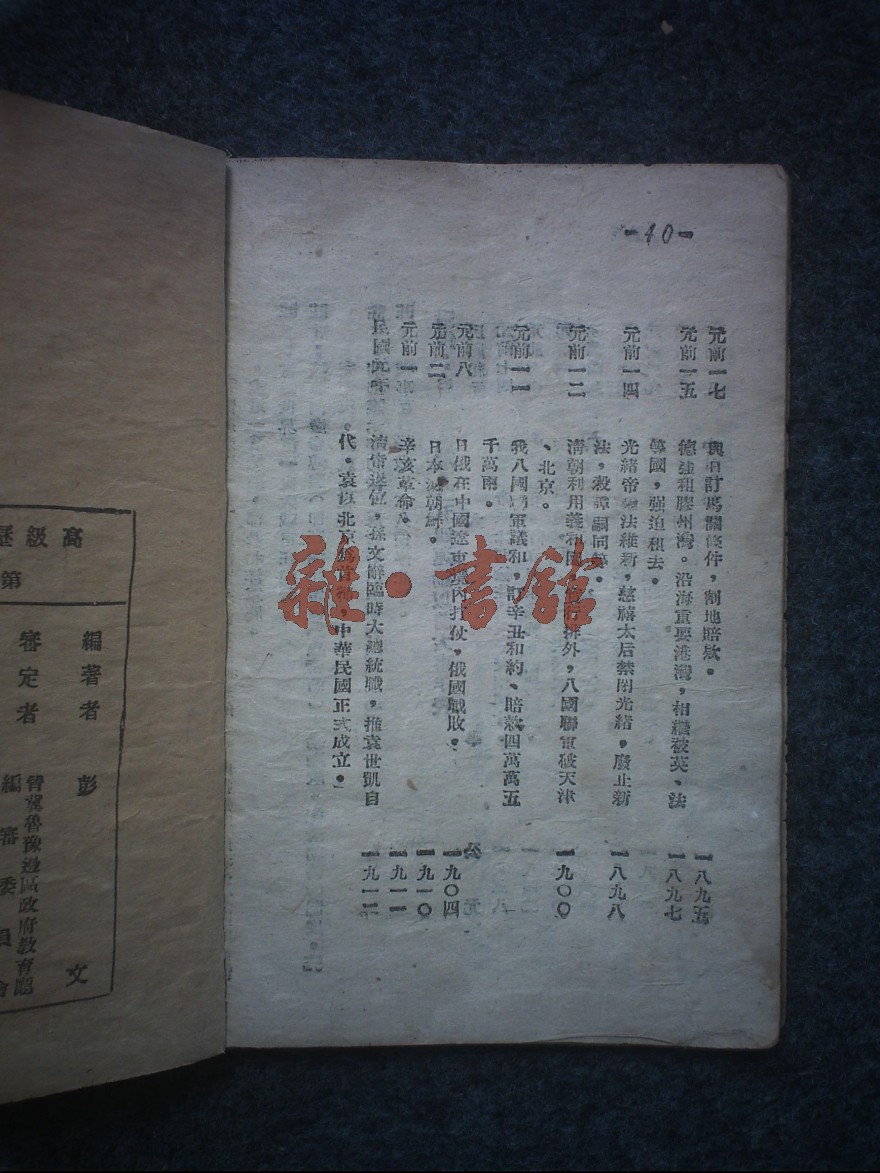 -40-
元前一七
與日訂馬關條件,割地賠欵。
一八九五
元前一五
德強租膠州灣。沿海重要港灣,相繼被英、法
等國,強迫租去。
一八九七
元前一四
光緒帝變法維新,慈禧太后禁閉光緒,廢止新
法,殺譚嗣同等。
一八九八
元前一二
清朝利用義和團,排外,八國聯軍破天津
、北京。
一九〇〇
元前一一
我八國聯軍議和,訂辛丑和約、賠欵四萬萬五
千萬兩。
元前八
日俄在中國遼東境內打仗,俄國戰敗。
一九〇四
元前二
日本滅朝鮮。
一九一〇
元前一
辛亥革命。
一九一一
民國元年
清帝退位,孫文辭臨時大總統職,推袁世凱自
代。袁以北京為首都,中華民國正式成立。
一九一二
雜·書館
高級歷
第
編著者 彭 文
審定者
晉冀魯豫邊區政府教育廳
編審委員會